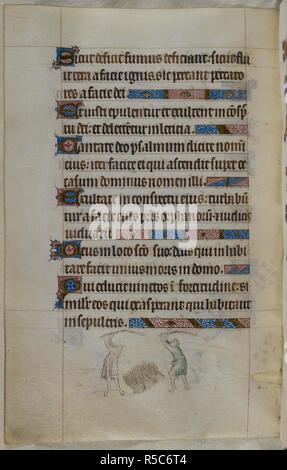 Sicut deficit fumus deficiant: sicut flu
it cera a facie ignis. sic pereant peccato
res a facie dei
Et iusti epulentur et exultent in cōsp
tu dei: et delectentur in leticia.
Cantate deo psalmum dicite nomī
eius: iter facite ei qui ascendit super oc
casum dominus nomen illi.
Exultate in conspectu eius: turbabū
tur a facie eius pr̄is orphanorū et iudicis
viduarū.
Deus in loco sc̄o suo: deus qui inhabi
tare facit unius moris in domo.
Qui educit vinctos ī fortitudine: si
militer eos qui exasperant qui habitant
in sepulcris.
alamy
Image ID: R5C6T4
www.alamy.com